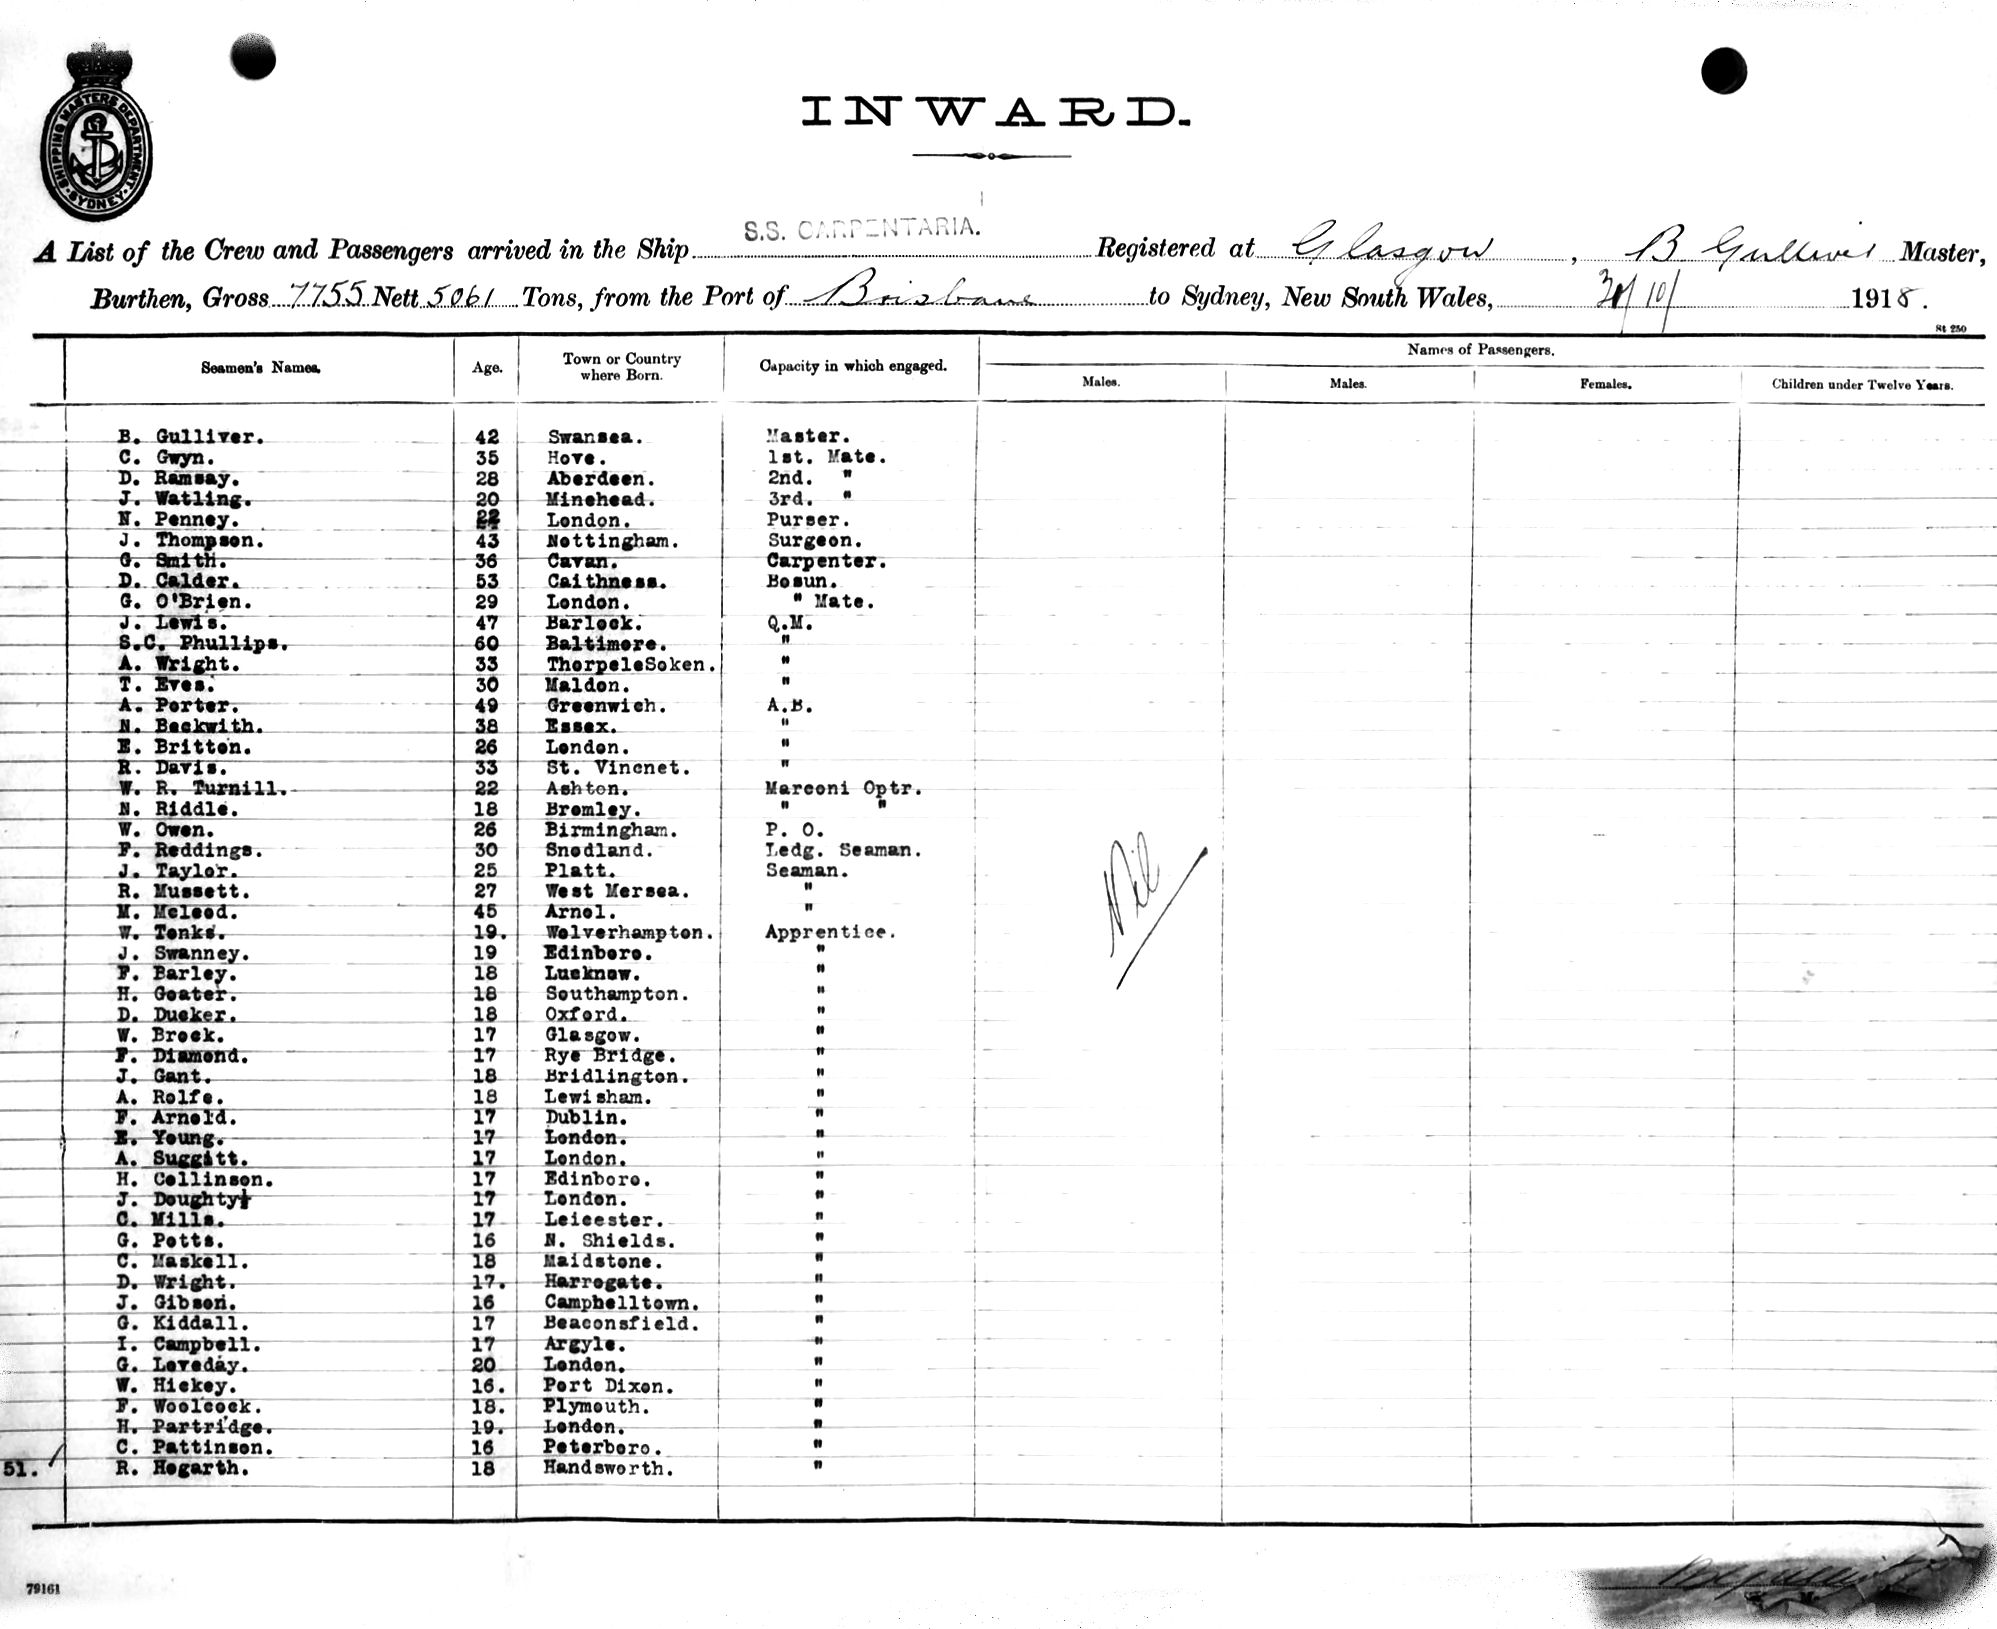 SHIPPING MASTERS DEPARTMENT. SYDNEY
INWARD.
S.S. CARPENTARIA.
A List of the Crew and Passengers arrived in the Ship Registered at Glasgow, B Gulliver Master,
Burthen, Gross 7755 Nett 5061 Tons, from the Port of Brisbane to Sydney, New South Wales, /10/ 1918.
St 250
Seamen's Names. Age. Town or Country where Born. Capacity in which engaged. Names of Passengers.
Males. Males. Females. Children under Twelve Years.
B. Gulliver. 42 Swansea. Master.
C. Gwyn. 35 Hove. 1st. Mate.
D. Ramsay. 28 Aberdeen. 2nd. "
J. Watling. 20 Minehead. 3rd. "
N. Penney. London. Purser.
J. Thompson. 43 Nottingham. Surgeon.
G. Smith. 36 Cavan. Carpenter.
D. Calder. 53 Caithness. Bosun.
G. O'Brien. 29 London. " Mate.
J. Lewis. 47 Barlock. Q.M.
S.C. Phullips. 60 Baltimore. "
A. Wright. 33 ThorpeleSoken. "
T. Eves. 30 Maldon. "
A. Porter. 49 Greenwich. A.B.
N. Beckwith. 38 Essex. "
E. Britton. 26 London. "
R. Davis. 33 St. Vincnet. "
W. R. Turnill. 22 Ashton. Marconi Optr.
N. Riddle. 18 Bromley. " "
W. Owen. 26 Birmingham. P. O.
F. Reddings. 30 Snodland. Ledg. Seaman.
J. Taylor. 25 Platt. Seaman.
R. Mussett. 27 West Mersea. "
M. Mcleod. 45 Arnol. "
W. Tonks. 19. Wolverhampton. Apprentice.
J. Swanney. 19 Edinboro. "
F. Barley. 18 Lucknow. "
Nil
H. Goater. 18 Southampton. "
D. Ducker. 18 Oxford. "
W. Brock. 17 Glasgow. "
F. Diamond. 17 Rye Bridge. "
J. Gant. 18 Bridlington. "
A. Rolfe. 18 Lewisham. "
F. Arnold. 17 Dublin. "
E. Young. 17 London. "
A. Suggitt. 17 London. "
H. Collinson. 17 Edinboro. "
J. Doughty 17 London. "
C. Mills. 17 Leicester. "
G. Potts. 16 N. Shields. "
C. Maskell. 18 Maidstone. "
D. Wright. 17. Harrogate. "
J. Gibson. 16 Campbelltown. "
G. Kiddall. 17 Beaconsfield. "
I. Campbell. 17 Argyle. "
G. Loveday. 20 London. "
W. Hickey. 16. Port Dixon. "
F. Woolcock. 18. Plymouth. "
H. Partridge. 19. London. "
C. Pattinson. 16 Peterboro. "
51. R. Hogarth. 18 Handsworth. "
79161